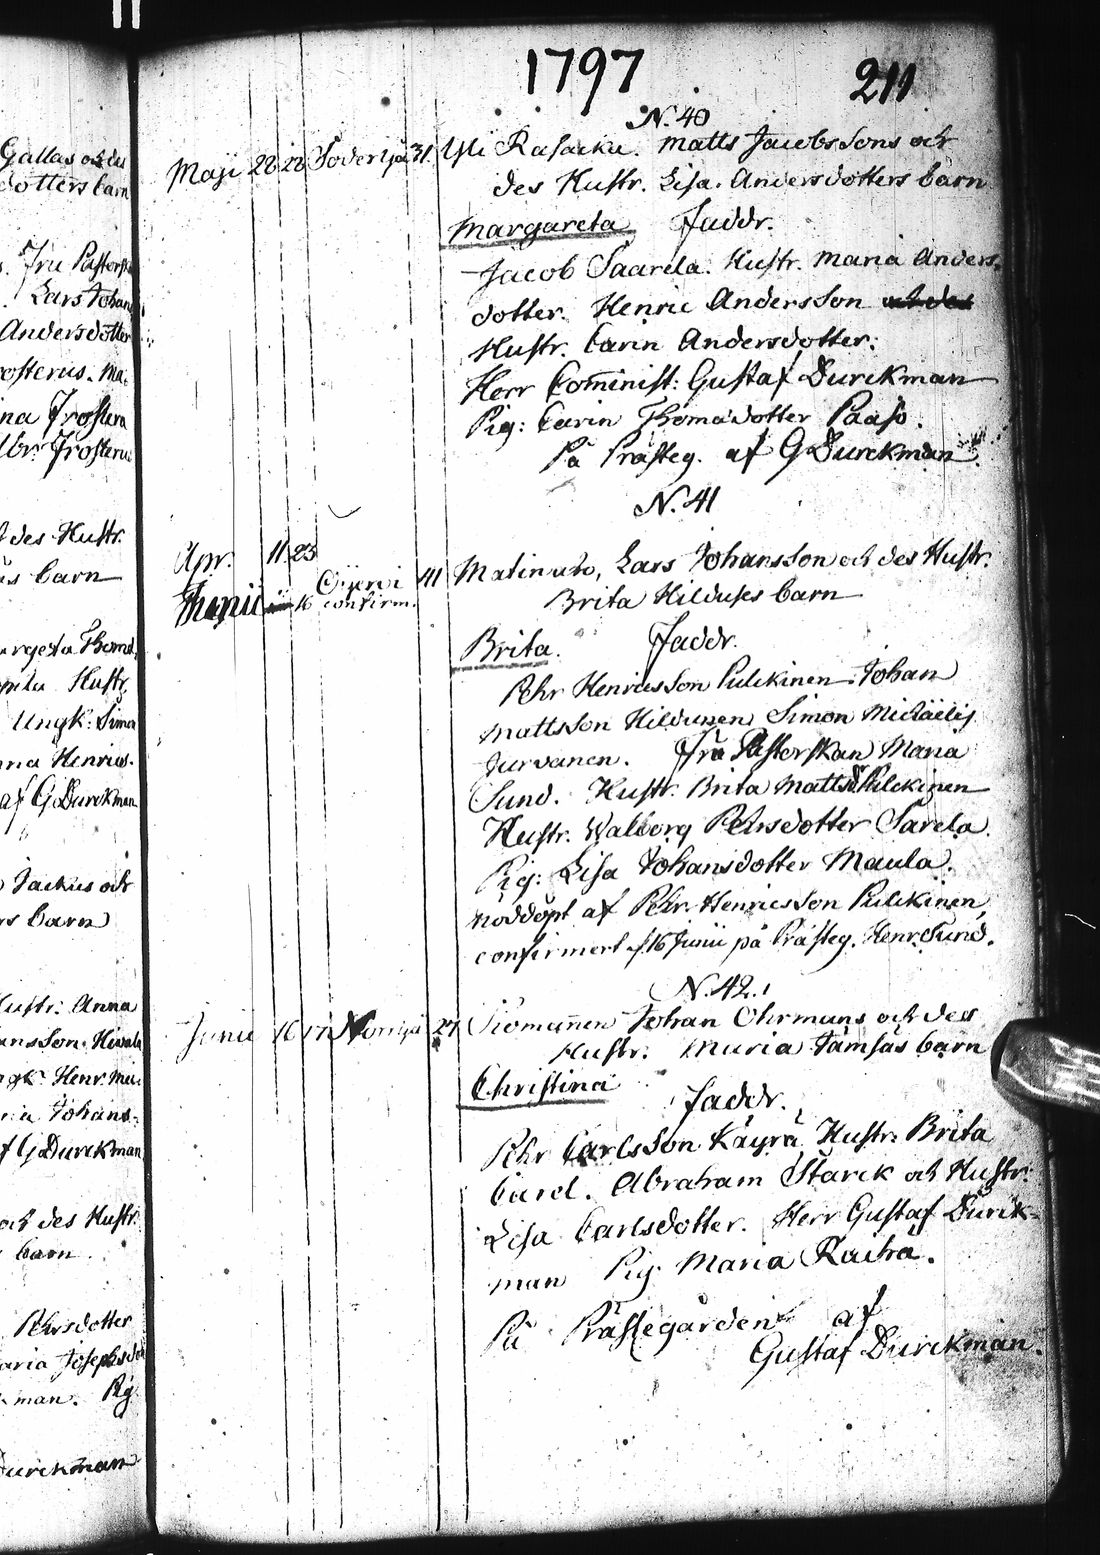 Gallas och des
dotters barn
Fru Pastorsk
Lars Johan
Andersdotter
rosterus. Ma
ina Frostera
des Hustr.
barn
Hustr.
Ungk: Simon
Henrics
af G Durckman
och
barn
Hustr: Anna
Henr.
Johans
af G Durckman
och des Hustr.
barn.
Pehrsdotter
aria Josephsd
man. Pig
Durckman
1797
211
N. 40
Maji 22 28 Söderbyn 31. Yli Rasacku. Matts Jacobssons och
des Hustr. Lisa. Andersdotters barn
Margareta Faddr.
Jacob Saarela. Hustr. Maria Anders-
dotter. Henric Andersson och des
Hustr. Carin Andersdotter.
Herr Com̄inist: Gustaf Durckman
Pig: Carin Thomasdotter Paaso.
På Prästeg. af G Durckman.
N. 41
Apr. 11 23
Matinuto, Lars Johansson och des Hustr.
Junii 16 confirm.
Brita Hildunes barn
Brita. Faddr.
Pehr Henricsson Pulckinen Johan
Mattsson Hildunen Simon Michaëlis
Jurvanen. Fru Pastorskan Maria
Sund. Hustr. Brita Mattsdr Pulckinen
Hustr. Walborg Pehrsdotter Sarela.
Pig: Lisa Johansdotter Maula.
nöddöpt af Pehr. Henricsson Pulckinen
confirmert d. 16 Junii på Prästeg. Henr. Sund.
N. 42.
Junii 16 17 Norrbyn 27. Johan Ohrmans och des
Hustr. Maria Tämsäs barn
Christina
Faddr.
Pehr Carlsson Käyrä Hustr: Brita
Carol. Abraham Starck och Hustr:
Lisa Carlsdotter. Herr Gustaf Durck-
man Pig: Maria Raiha.
På Prästegården af
Gustaf Durckman.